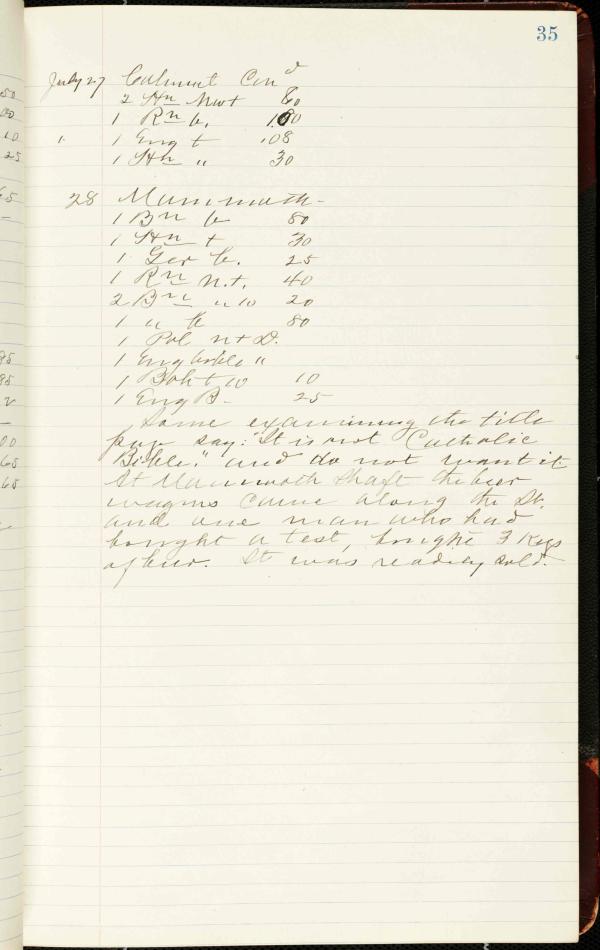 35
July 27 Calumet Con'd
2 Hn Nwt 60
1 Rn b. 100
" 1 Eng t .08
1 Hn " 30
28 Mammoth -
1 Bn b 80
1 Hn t 30
1 Ger b. 25
1 Rn N.t. 40
2 Bn " 10 20
1 " b 80
1 Pol n t D.
1 Eng bible "
1 Boh t 10 10
1 Eng B - 25
Some examining the title
page say: "It is not Catholic
Bible." and do not want it
At Mammoth Shaft the beer
wagons came along the St.
and one man who had
bought a test, bought 3 Kegs
of beer. It was readily sold.
50
00
10
25
65
95
85
00
65
65